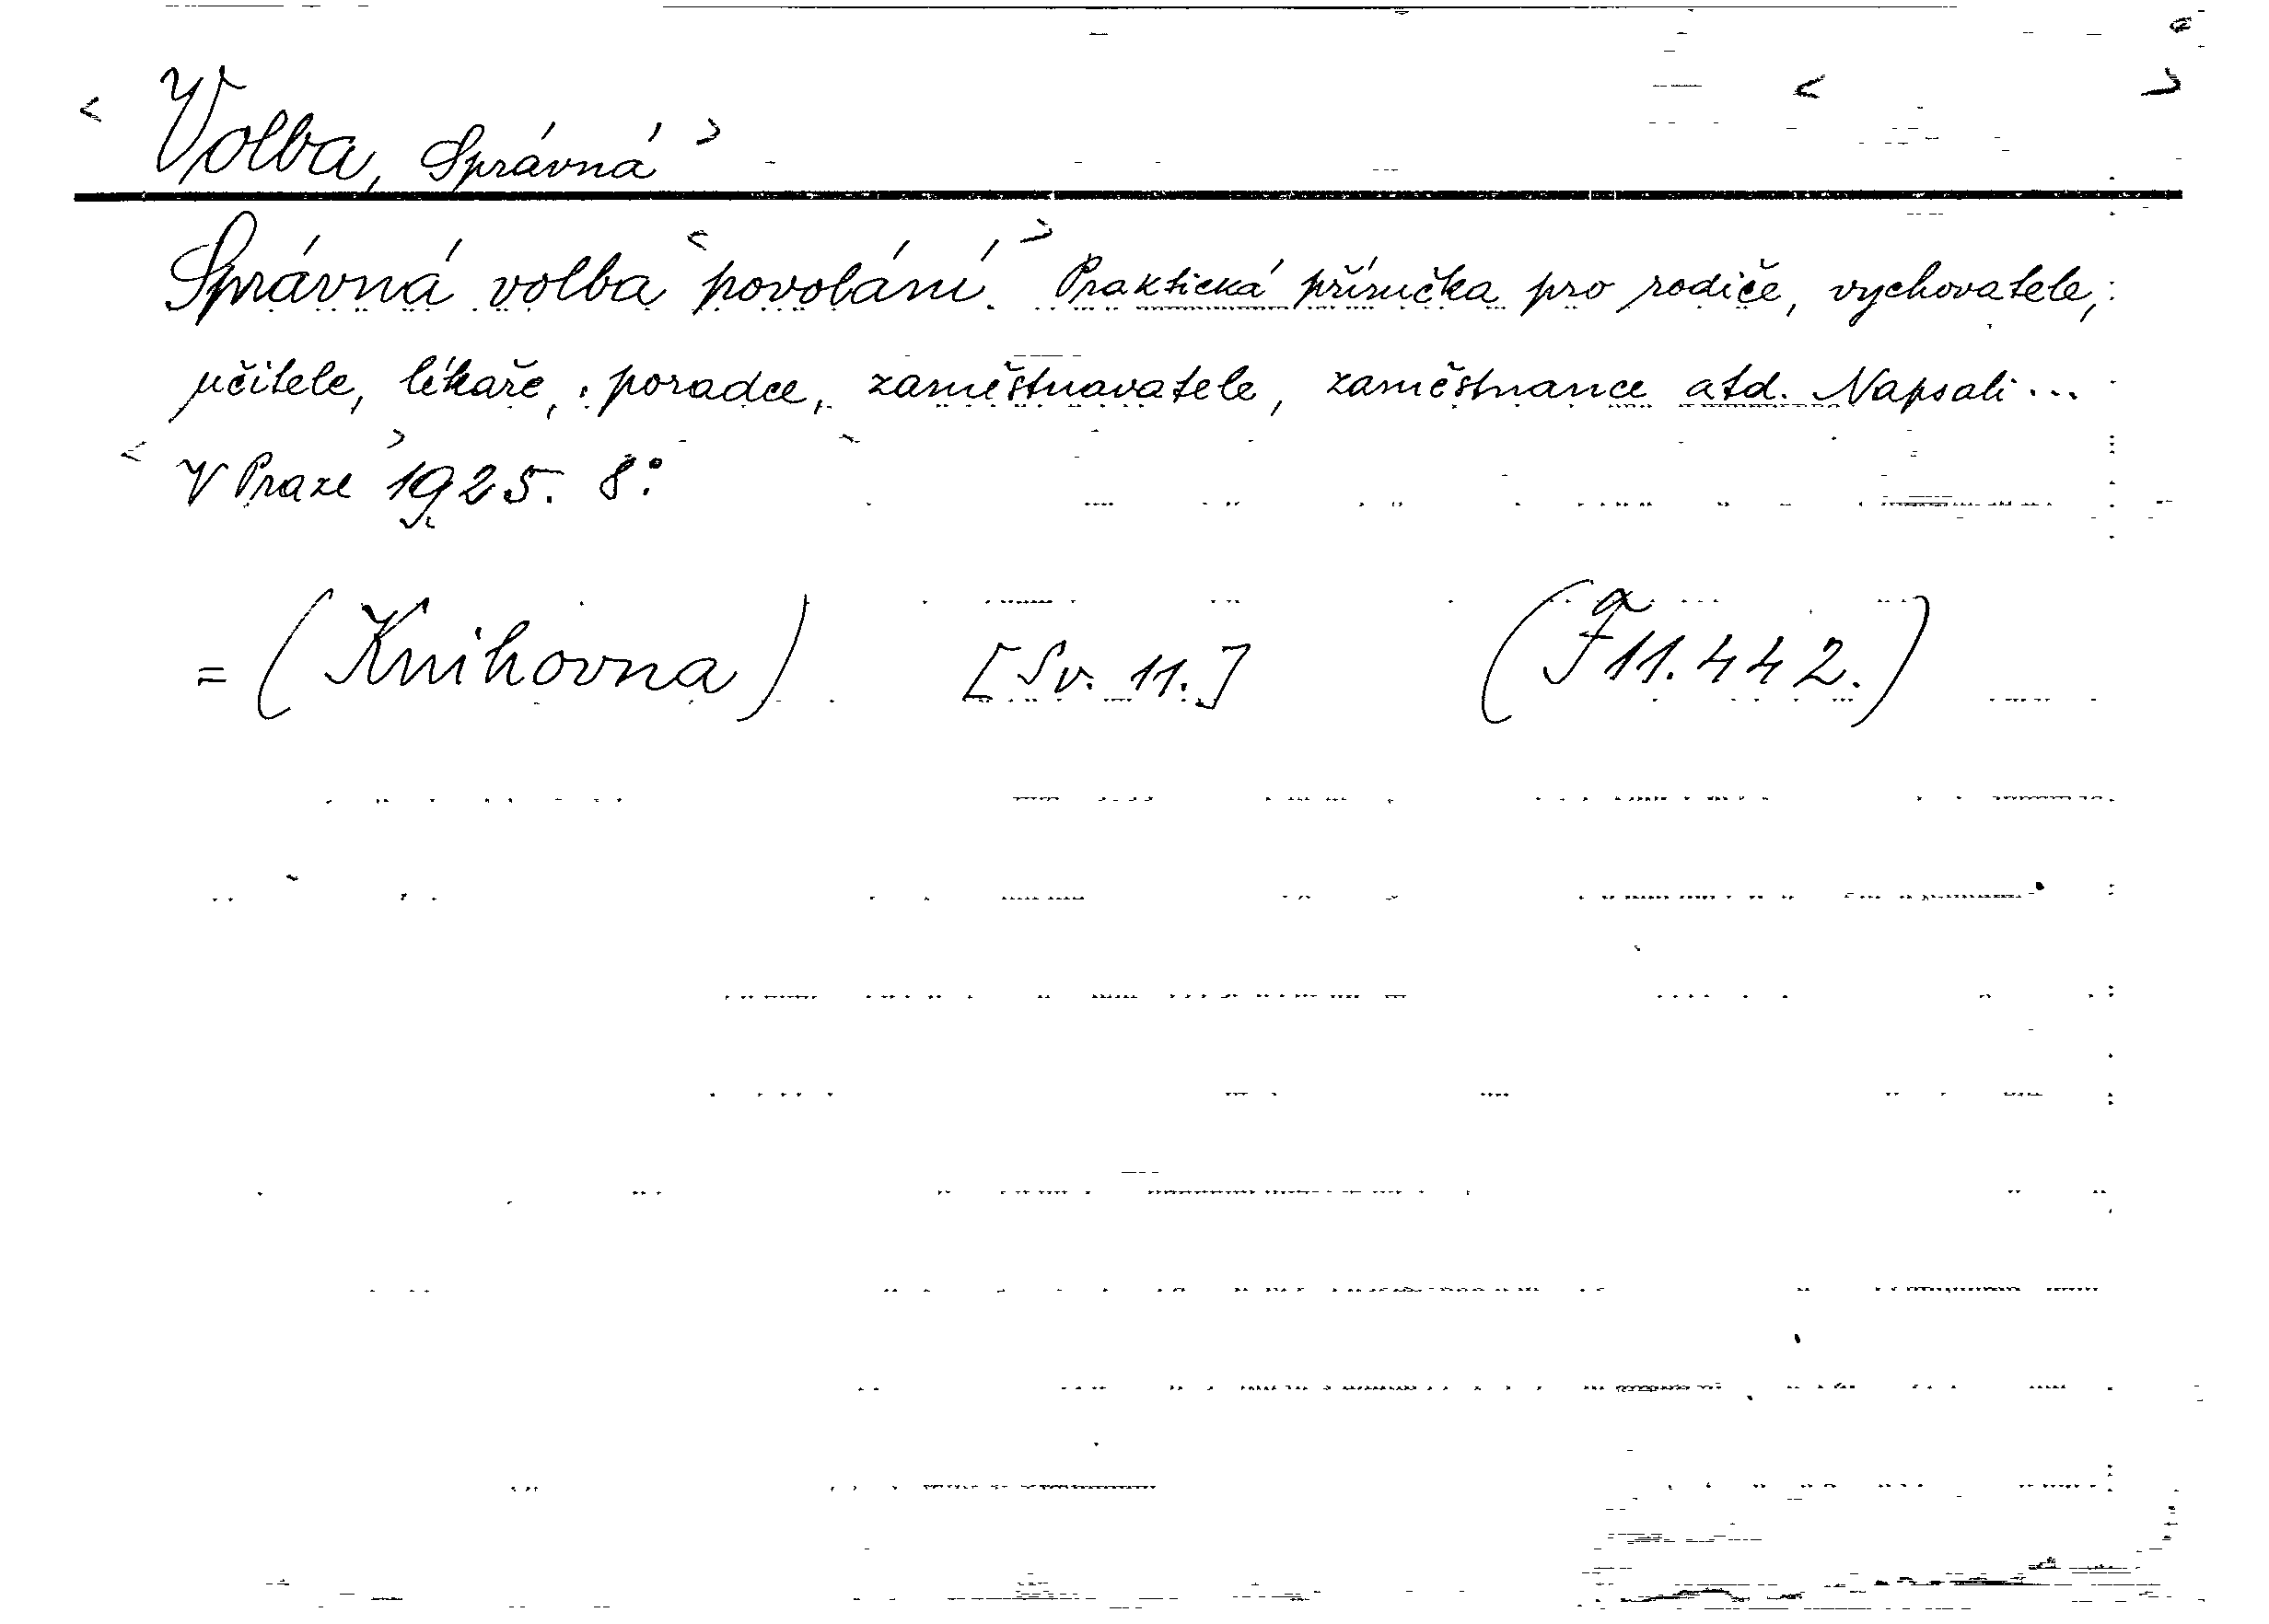 < Volba, Správná > < >
Správná volba < povolání. > Praktická příručka pro rodiče, vychovatele,
učitele, lékaře, poradce, zaměstnavatele, zaměstnance atd. Napsali...
< V Praze > 1925. 8°.
= (Knihovna) [Sv. 11.] (F 11.442.)